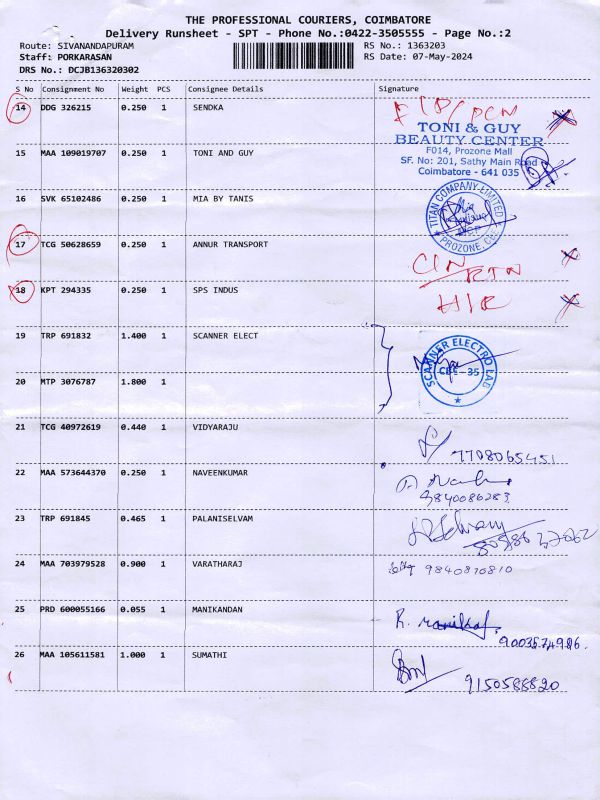 THE PROFESSIONAL COURIERS, COIMBATORE
Delivery Runsheet - SPT - Phone No.:0422-3505555 - Page No.:2
Route: SIVANANDAPURAM RS No.: 1363203
Staff: PORKARASAN RS Date: 07-May-2024
DRS No.: DCJB136320302
S No Consignment No Weight PCS Consignee Details Signature
14 DDG 326215 0.250 1 SENDKA
TONI & GUY
BEAUTY CENTER
15 MAA 109019707 0.250 1 TONI AND GUY F014, Prozone Mall
SF. No: 201, Sathy Main Road
Coimbatore - 641 035
16 SVK 65102486 0.250 1 MIA BY TANIS TITAN COMPANY LIMITED
PROZONE, CBE
17 TCG 50628659 0.250 1 ANNUR TRANSPORT
18 KPT 294335 0.250 1 SPS INDUS
19 TRP 691832 1.400 1 SCANNER ELECT SCANNER ELECTRO LAB
CBE - 35
20 MTP 3076787 1.800 1
21 TCG 40972619 0.440 1 VIDYARAJU
7708065451
22 MAA 573644370 0.250 1 NAVEENKUMAR
9840086283
23 TRP 691845 0.465 1 PALANISELVAM
24 MAA 703979528 0.900 1 VARATHARAJ 9840870810
25 PRD 600055166 0.055 1 MANIKANDAN
26 MAA 105611581 1.000 1 SUMATHI
9150588820